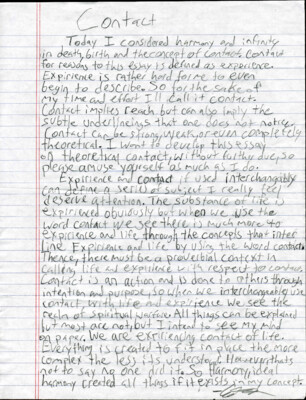 Contact
Today I considered harmony and infinity
in death, birth and the concept of contact. Contact
for reasons to this essay is defined as experience.
Expirience is rather hard for me to even
begin to describe. So for the sake of
my time and effort I'll call it contact.
Contact implies reach but can also imply the
subtle underlinings that one does not notice.
Contact can be strong, weak, or even completely
theoretical. I want to develop this essay
on theoretical contact, without further due, so
please amuse yourself as much as I do.
Expirience and contact if used interchangably
can define a series of subject I really feel
deserve attention. The substance of life is
expirienced obviously but when we use the
word contact we see there is much more to
expirience and life through the concepts that inter
line Expirience and life by using the word contact.
Thence, there must be a proverbial context in
calling life as expirience with respect to contact.
Contact is an action and is done to others through
intention and purpose, so when we interchangably use
contact, with life and expirience we see the
realm of spiritual warfare. All things can be explained
but most are not, but I intend to see my mind
on paper. We are expiriencing contact of life.
Everything is created to fit in place the more
complex the less its understood. However thats
not to say no one did it. So Harmony, ideal
harmony created all things if it exists in my concept.